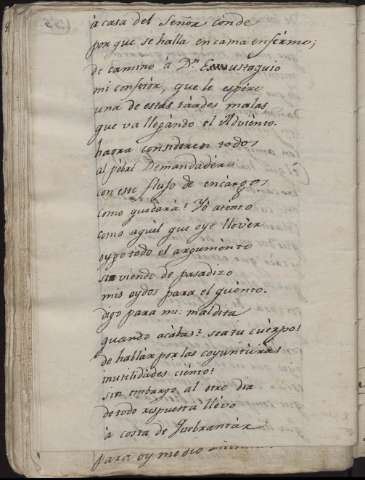 à casa del Señor conde
porque se halla en cama enfermo;
de camino à Dn Eustaquio
mi confesór, que le espero
una de estas tárdes malas
que va llegándo el Adviento.
harra consideren todos
al póbre Demandadéro
con este flujo de encárgos
como quedará! Yo atento
como aquél que oye llovér
oygo todo el arguménto
sirviendo de pasadizo
mis oydos para el quento.
digo para mi: maldita
quando acábas? sea tu cuérpo!
de hablár por las coyuntúras
inutilidades ciento!
sin embargo al otro dia
de todo respuesta llévo
à costa de
para oy medio